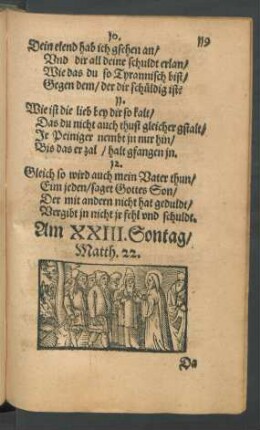 10.
119
Dein elend hab ich gsehen an/
Vnd dir all deine schuldt erlan/
Wie das du so Tyrannisch bist/
Gegen dem/ der dir schüldig ist?
11.
Wie ist die lieb bey dir so kalt/
Das du nicht auch thust gleicher gstalt/
Ir Peiniger nembt jn nur hin/
Bis das er zal / halt gfangen jn.
12.
Gleich so wird auch mein Vater thun/
Eim jeden/ saget Gottes Son/
Der mit andern nicht hat gedult/
Vergibt jn nicht jr fehl vnd schuldt.
Am XXIII. Sontag/
Matth. 22.
Da